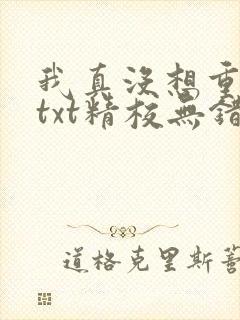 我真没想重
txt精校无错
道格克里斯蒂